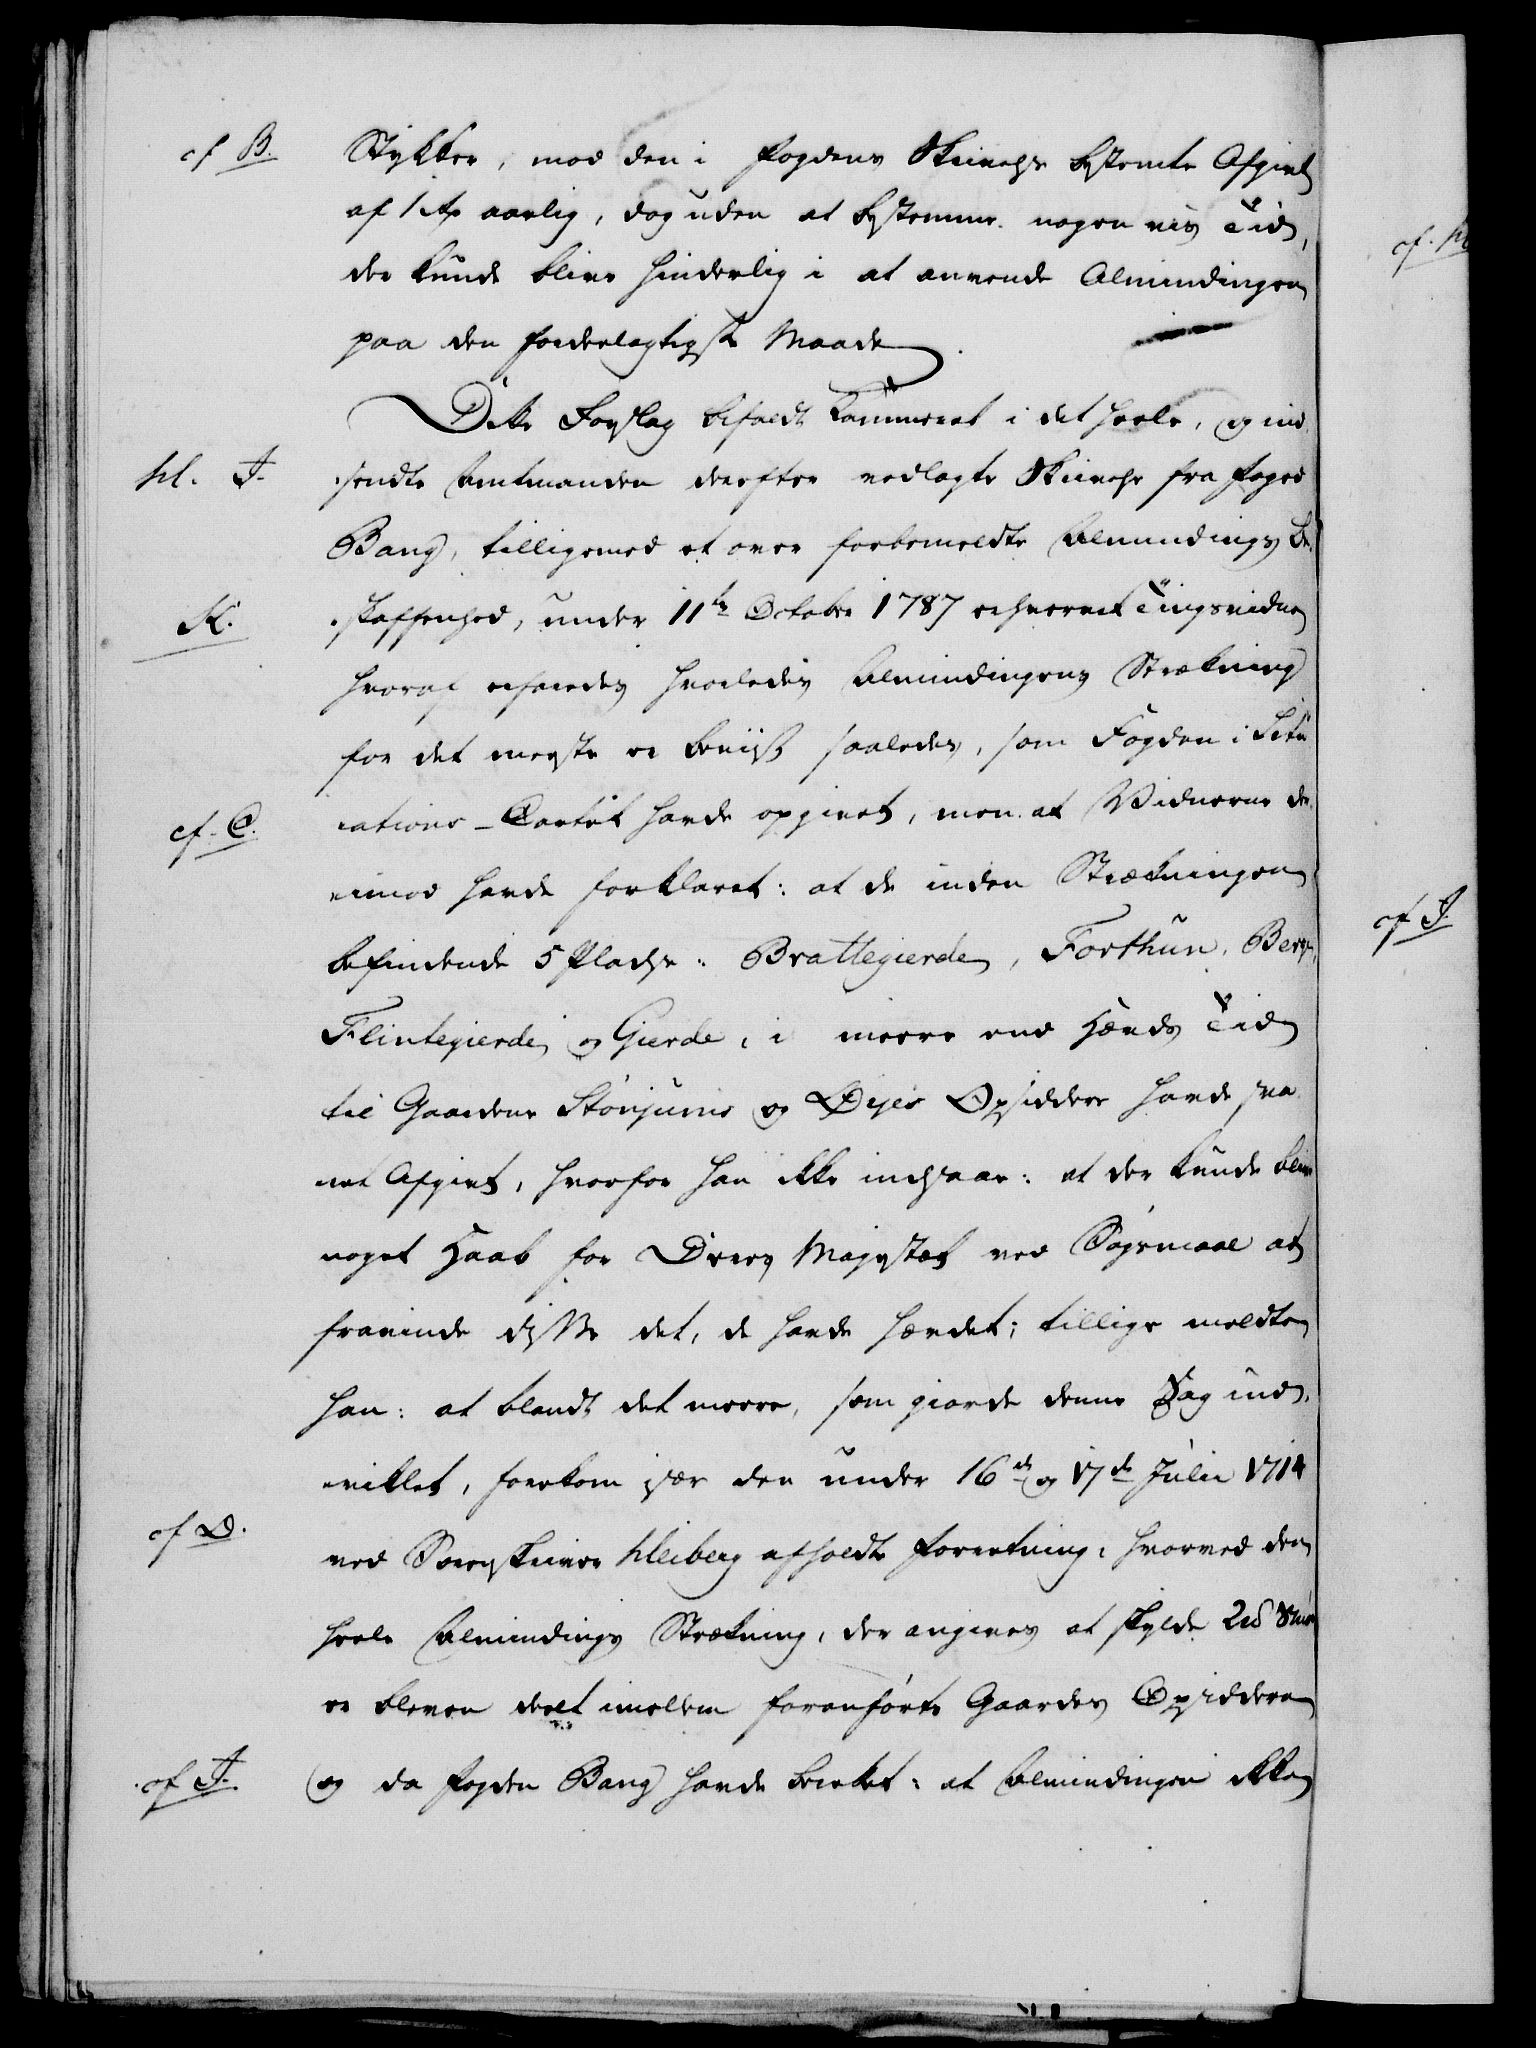 cf B.
Stykker, mod den i Fogdens Skrivelse bestemte Afgivt
af 1 rdr aarlig, dog uden at bestemme nogen vis Tid,
der kunde blive hinderlig i at anvende Almindingen
paa den fordeelagtigste Maade.
Dette Forslag bifaldt Kammeret i det heele, og ind-
hl. I.
sendte Amtmanden derefter vedlagte Skrivelse fra Foged
Bang, tilligemed et over forbemeldte Almindings Be-
K.
skaffenhed, under 11te October 1787 erhvervet Tingsvidne
hvoraf erfaredes hvorledes Almindingens Strækning
for det meeste er beviist saaledes, som Fogden i Situ-
cf. C.
ations-Cartet havde opgivet, men at Vidnerne der-
imod havde forklaret: at de inden Strækningen
befindende 5 Pladse: Brattegierde, Forthun, Berge,
Flintegierde og Gierde, i meere end Hævds Tid
til Gaardene Stönjums og Øyes Opsiddere havde sva-
ret Afgivt, hvorfor han ikke indsaae: at der kunde blive
noget Haab for Deres Majestæt ved Søgsmaal at
fravinde disse det, de havde hævdet; tillige meldte
han: at blandt det meere, som giorde denne Sag ind-
viklet, forekom især den under 16de og 17de Julii 1714
cf D.
ved Sorenskriver Heiberg afholdte Forretning, hvorved den
heele Almindings Strækning, der angives at skylde
er bleven deelt imellem foranførte Gaardes Opsiddere
cf I.
og da Fogden Bang havde beviset: at Almindingen ikke
cf.
cf I.